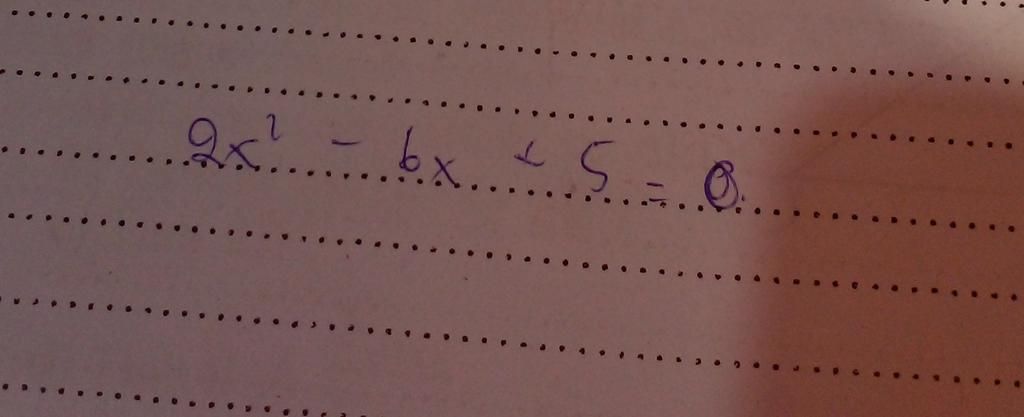 2x² - 6x + 5 = 0.